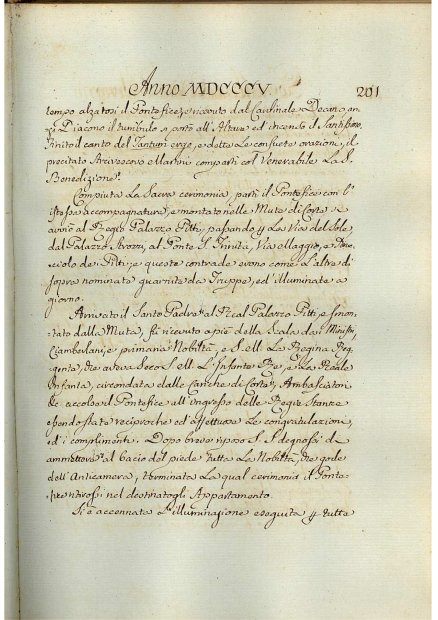 Anno MDCCCV. 201
tempo alzatosi il Pontefice, e ricevuto dal Cardinale Decano an-
zi Diacono il turibulo si portò all'Altare ed incensò il Santissimo,
finito il canto del Tantum ergo, e dette le consuete orazioni, il
precitato Arcivescovo Martini compartì col Venerabile la S.
Benedizione.
Compiuta la Sacra ceremonia, partì il Pontefice con l'
istessa accompagnatura, e montato nelle Mute di Corte si
avviò al Regio Palazzo Pitti, passando per la Via del Sole,
dal Palazzo Strozzi, al Ponte S. Trinita, Via Maggio, e
de' Pitti, e queste contrade erono come l'altre di
sopra nominate guarnite da Truppe, ed'illuminate a
giorno.
Arrivato il Santo Padre al Real Palazzo Pitti, e smon-
tato dalla Muta, fù ricevuto a piè della Scala da Ministri,
Ciamberlani, e primaria Nobiltà, e S. M. la Regina Reg-
gente, che aveva seco S. M. L'Infante Re, e la Reale
Infanta, circondata dalle Cariche di Corte, Ambasciatori
accolse il Pontefice all'ingresso delle Regie Stanze
essendo state reciproche ed affettuose le congratulazioni,
ed'i complimenti. Dopo breve riposo S. S. degnossi di
ammettere al bacio del piede tutta la Nobiltà, che gode
dell'Anticamera, terminata la qual ceremonia il Ponte-
fice ritirossi nel destinatogli Appartamento.
Si è accennata l'illuminazione eseguita per tutta